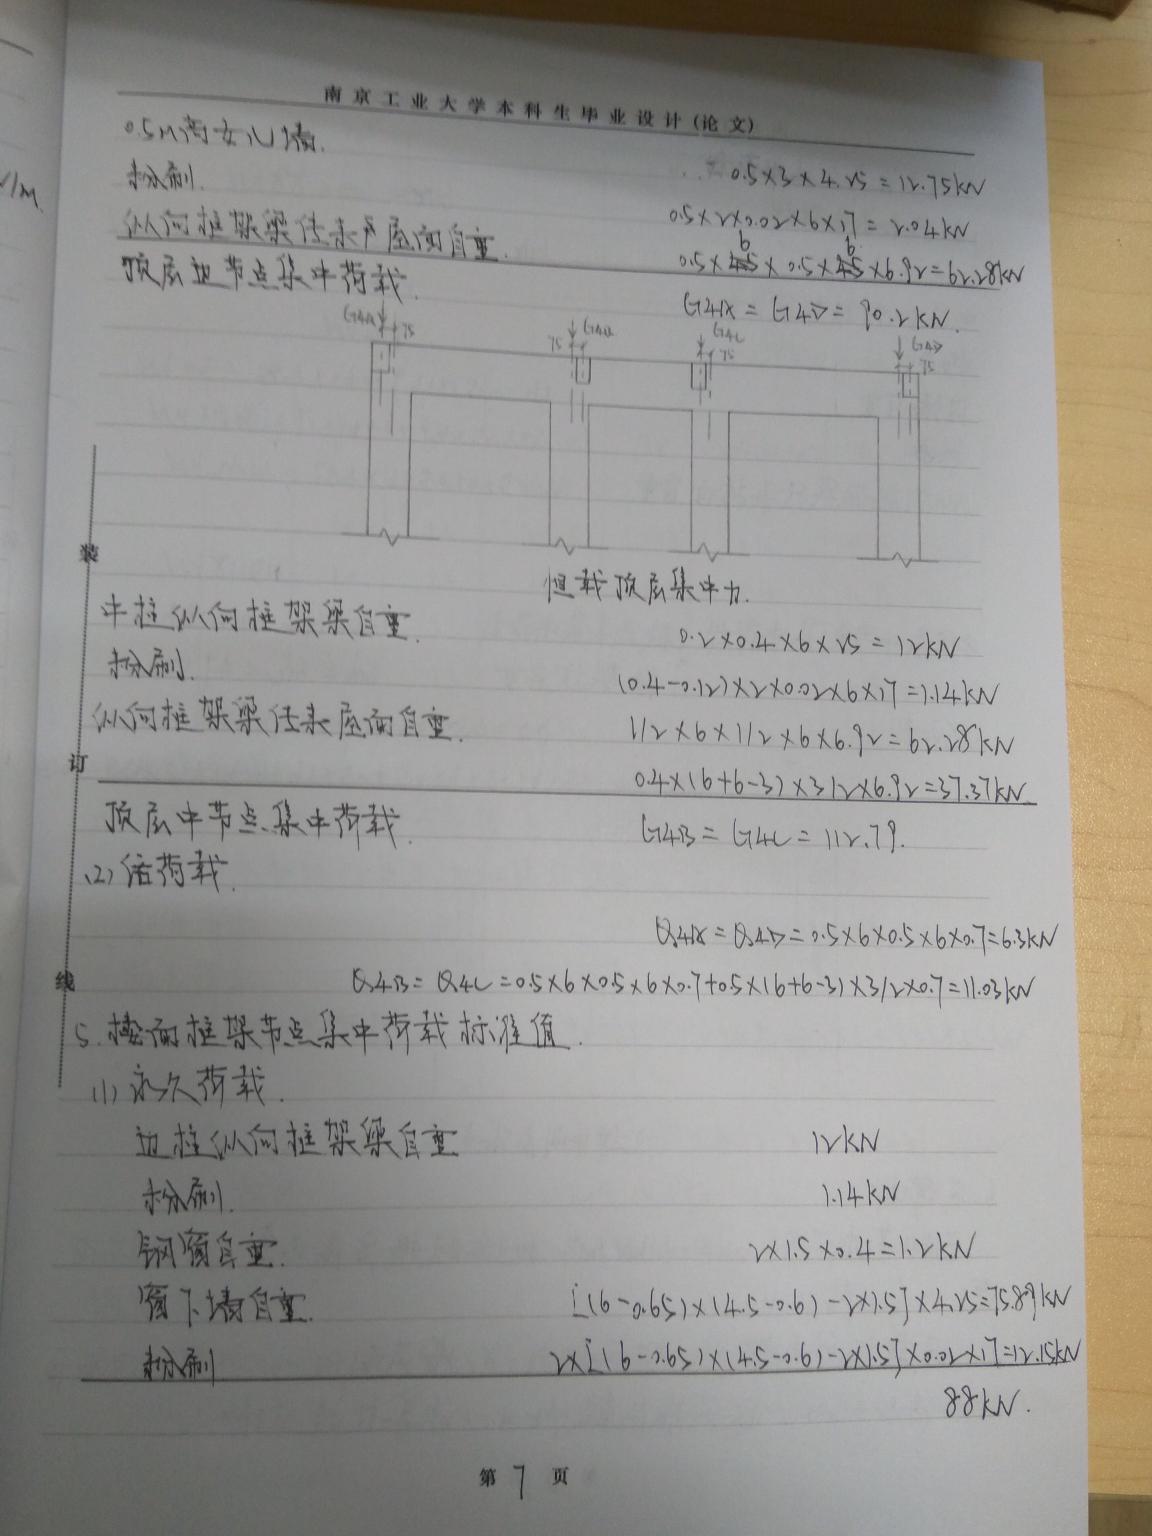 南京工业大学本科生毕业设计(论文)
0.5M高女儿墙. 0.5×3×4.25=12.75kN
粉刷. 0.5×2×0.02×6×17=2.04kN
纵向框架梁传来屋面自重. 0.5×6×0.5×6×6.92=62.28kN
顶层边节点集中荷载. G4A=G4D=90.2kN.
G4A 75 75 G4B G4C 75 G4D 75
恒载顶层集中力.
中柱纵向框架梁自重. 0.2×0.4×6×25=12kN
粉刷. (0.4-0.12)×2×0.02×6×17=1.14kN
纵向框架梁传来屋面自重. 1/2×6×1/2×6×6.92=62.28kN
0.4×(6+6-3)×3/2×6.92=37.37kN
顶层中节点集中荷载. G4B=G4C=112.79.
(2)活荷载.
Q4A=Q4D=0.5×6×0.5×6×0.7=6.3kN
Q4B=Q4C=0.5×6×0.5×6×0.7+0.5×(6+6-3)×3/2×0.7=11.03kN
5.楼面框架节点集中荷载标准值.
(1)永久荷载.
边柱纵向框架梁自重 12kN
粉刷. 1.14kN
钢窗自重. 2×1.5×0.4=1.2kN
窗下墙自重. [(6-0.65)×(4.5-0.6)-2×1.5]×4.25=75.89kN
粉刷 2×[(6-0.65)×(4.5-0.6)-2×1.5]×0.02×17=12.15kN
88kN.
装
订
线
第7页